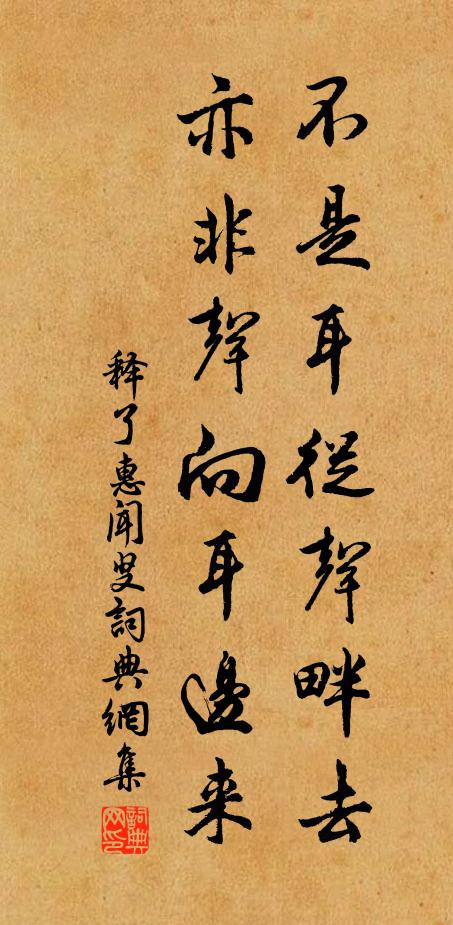 不是耳從聲畔去
亦非聲向耳邊来
释了惠聞叟詞典網集
詞典网印